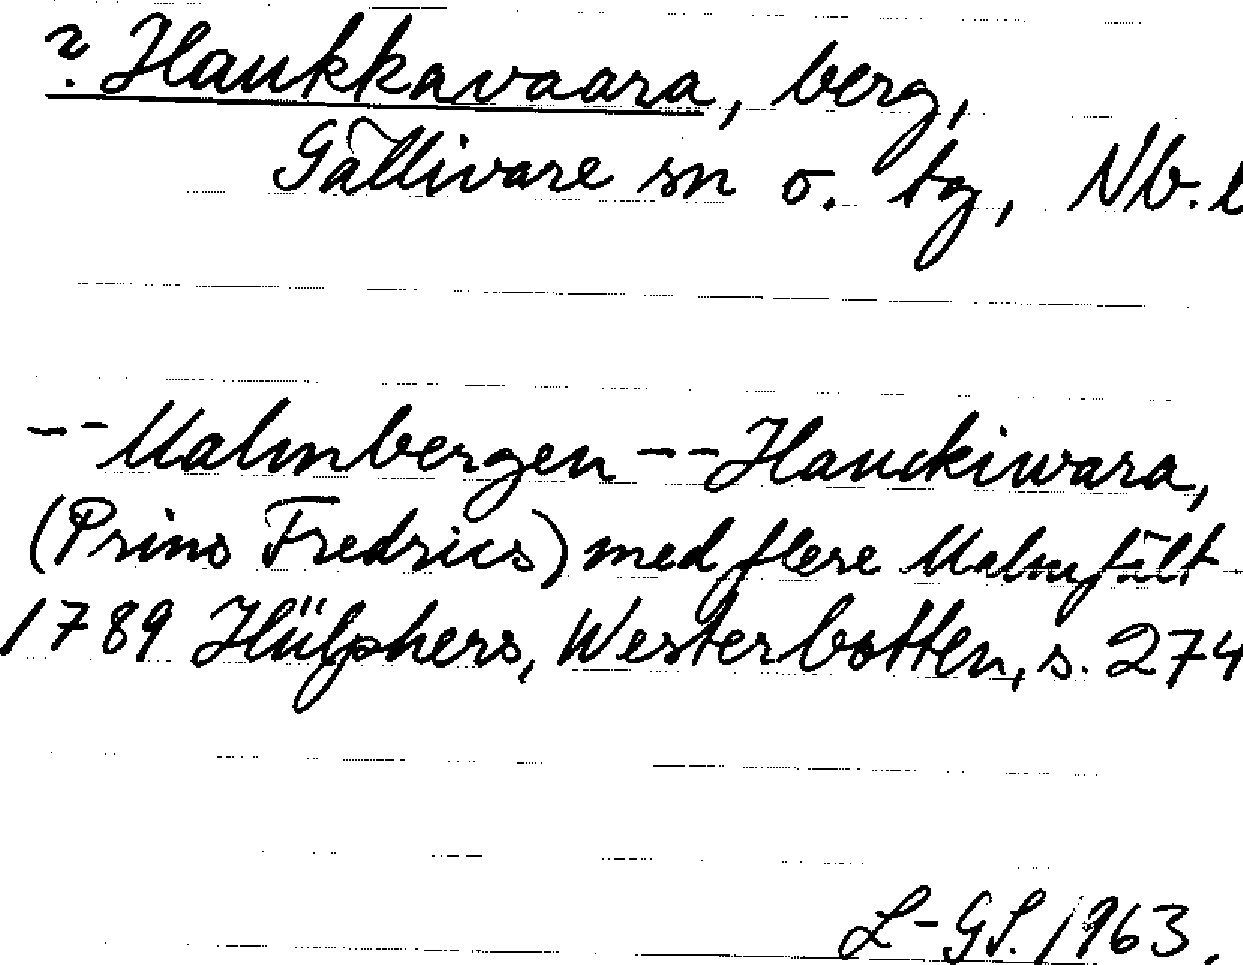 ? Haukkavaara, berg,
Gällivare sn o. tg, Nb. l
-- Malmbergen -- Hauckiwara,
(Prins Fredrics) med flere Malmfält
1789 Hülphers, Westerbotten, s. 274
L-GS. 1963.